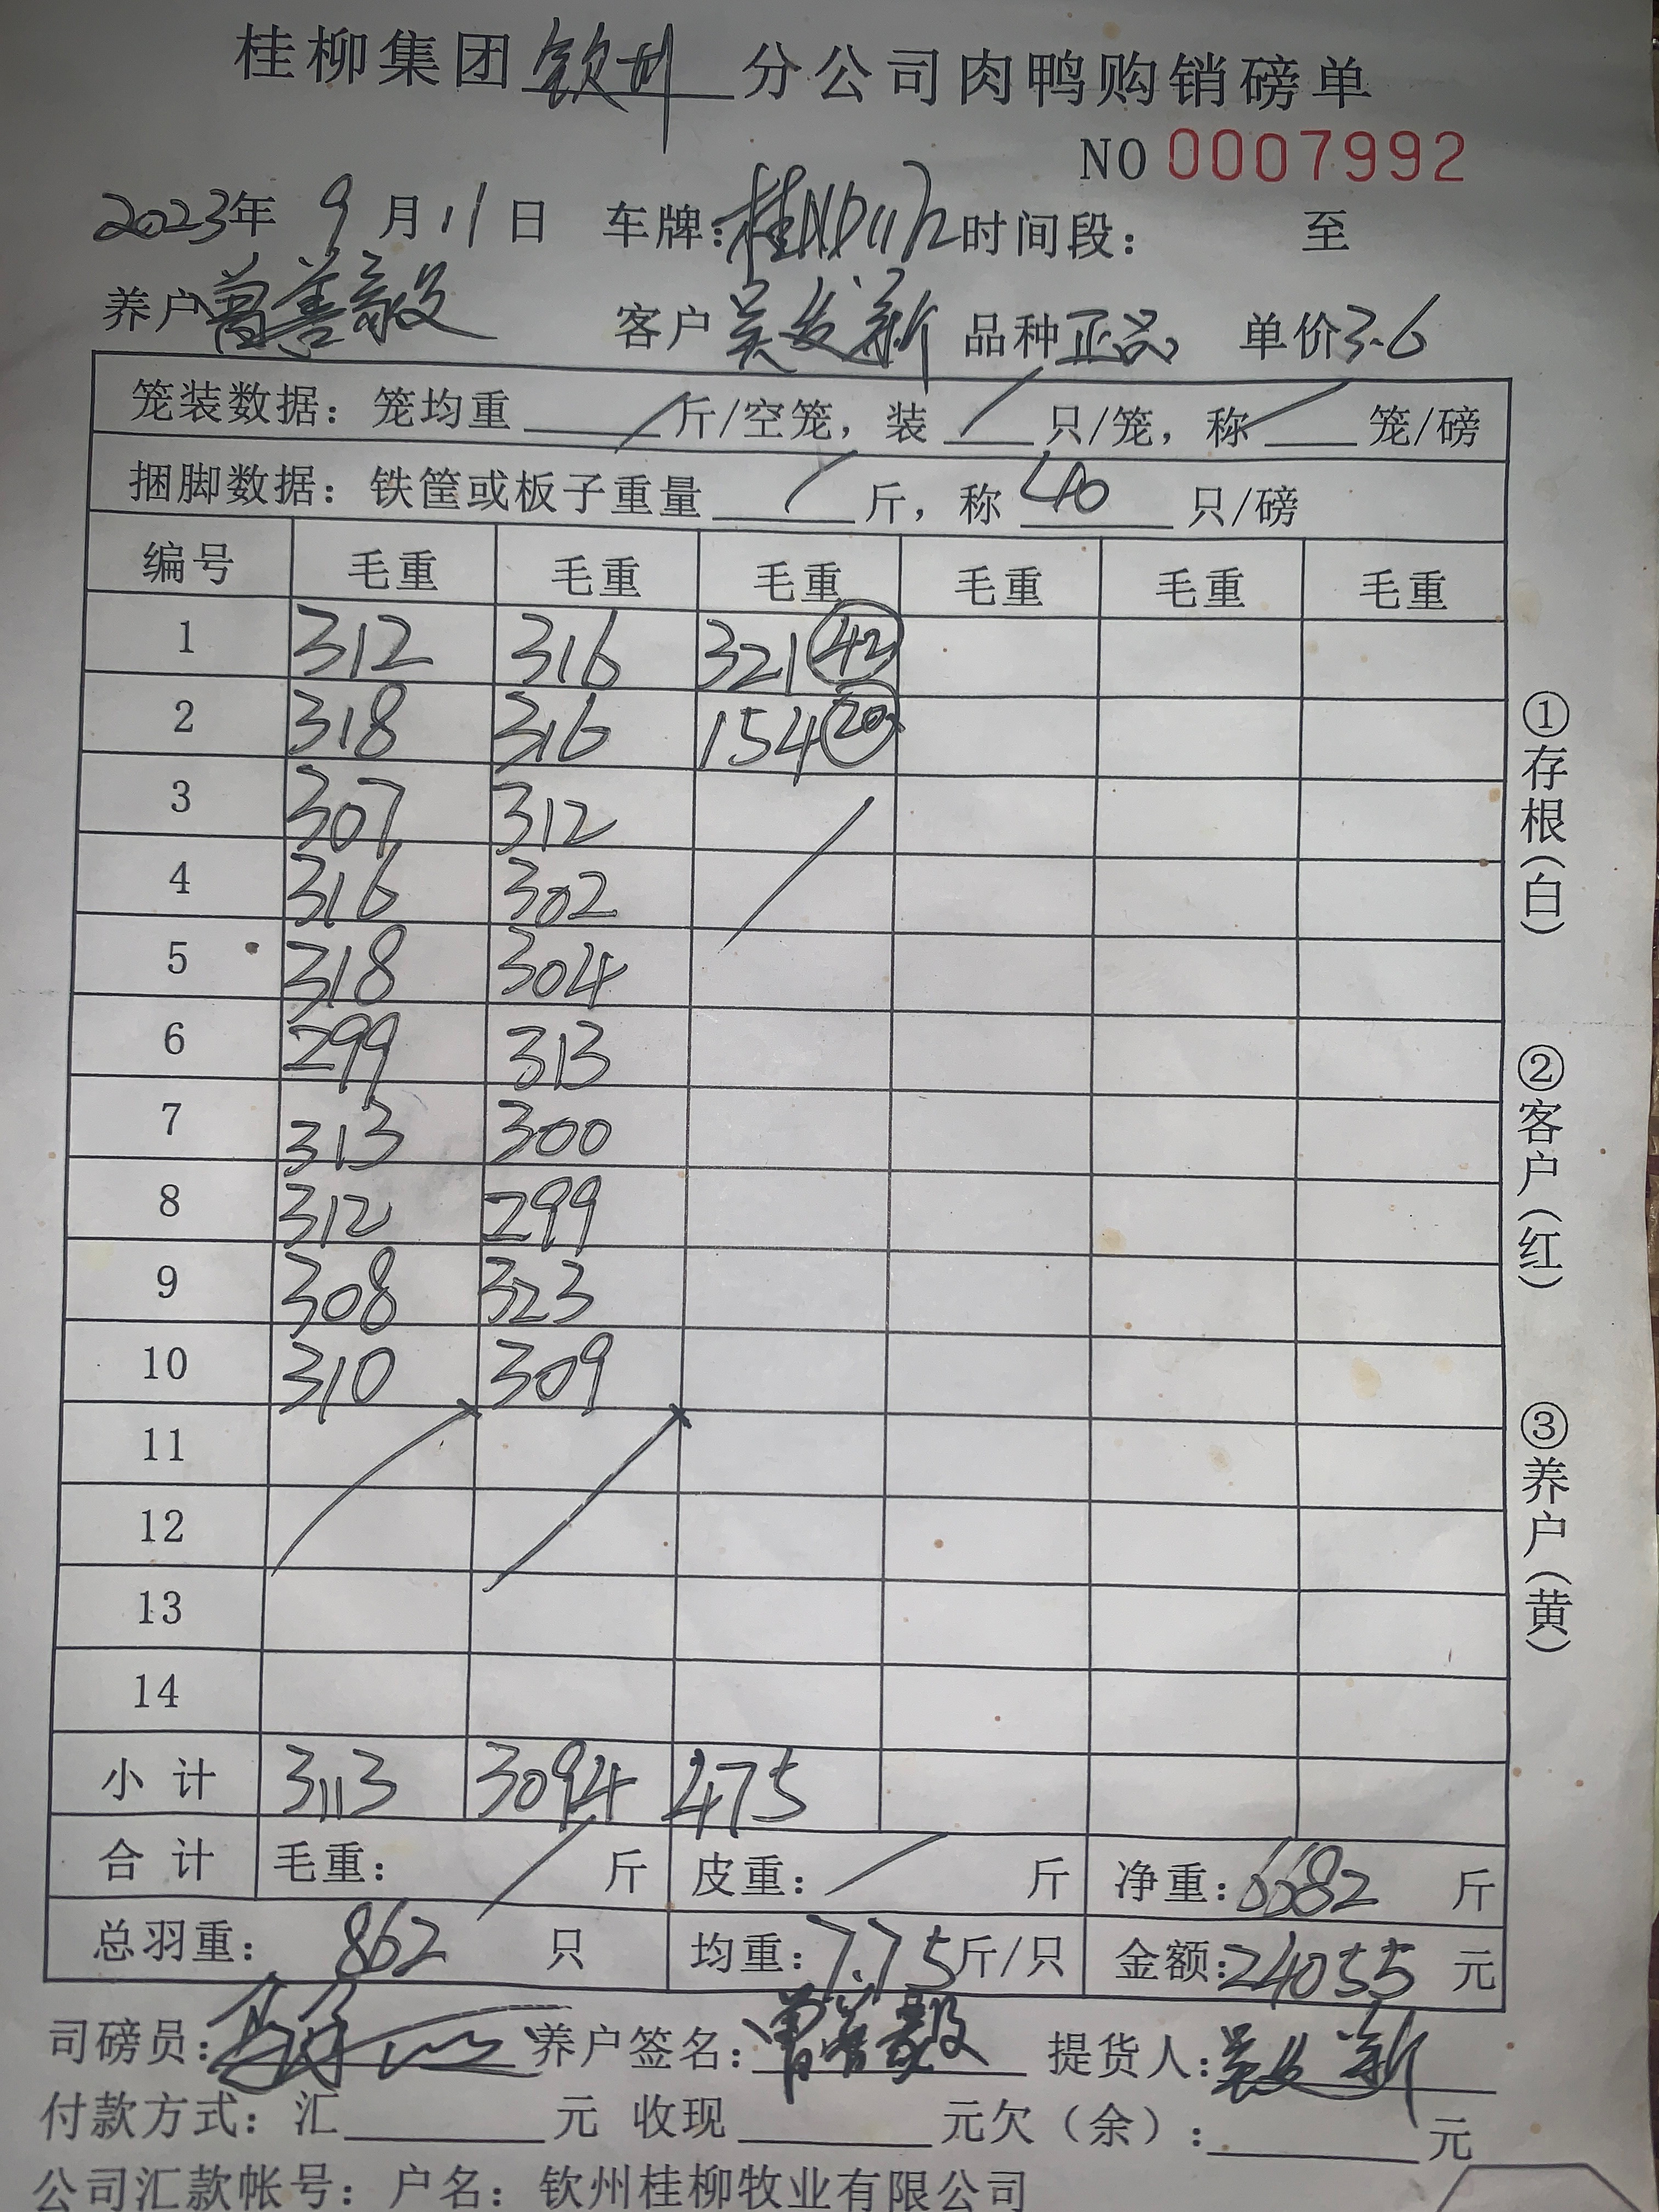 桂柳集团钦州分公司肉鸭购销磅单
NO 0007992
2023年 9 月 11 日 车牌:桂ND1172时间段: 至
养户曾善毅 客户吴发新 品种正品 单价3.6
笼装数据:笼均重 / 斤/空笼,装 / 只/笼,称 / 笼/磅
捆脚数据:铁筐或板子重量 / 斤,称 40 只/磅
编号 毛重 毛重 毛重 毛重 毛重 毛重
1 312 316 321 42
2 318 316 154 20
3 307 312
4 316 302
5 318 304
6 299 313
7 313 300
8 312 299
9 308 323
10 310 309
11
12
13
14
小计 3113 3094 475
合计 毛重: / 斤 皮重: / 斤 净重:6682 斤
总羽重: 862 只 均重:7.75斤/只 金额:24055 元
司磅员: 养户签名:曾善毅 提货人:吴发新
付款方式:汇 元 收现 元欠(余): 元
公司汇款帐号:户名:钦州桂柳牧业有限公司
①存根(白)
②客户(红)
③养户(黄)